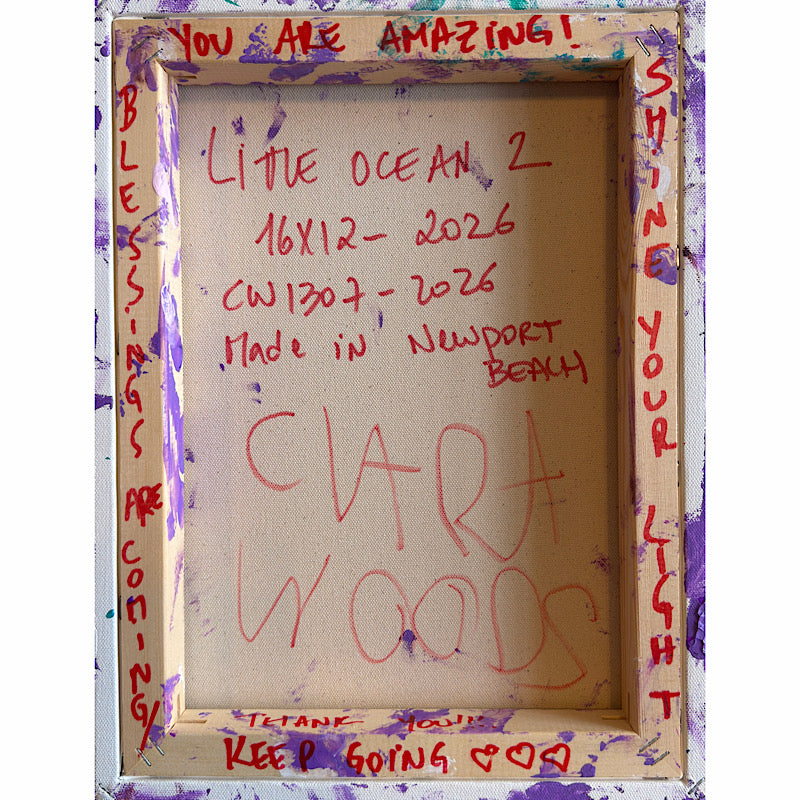 YOU ARE AMAZING!
BLESSINGS ARE COMING!
SHINE YOUR LIGHT
LITTLE OCEAN 2
16X12 - 2026
CW1307 - 2026
Made in NEWPORT
BEACH
CLARA
WOODS
THANK YOU!!!
KEEP GOING ♡♡♡